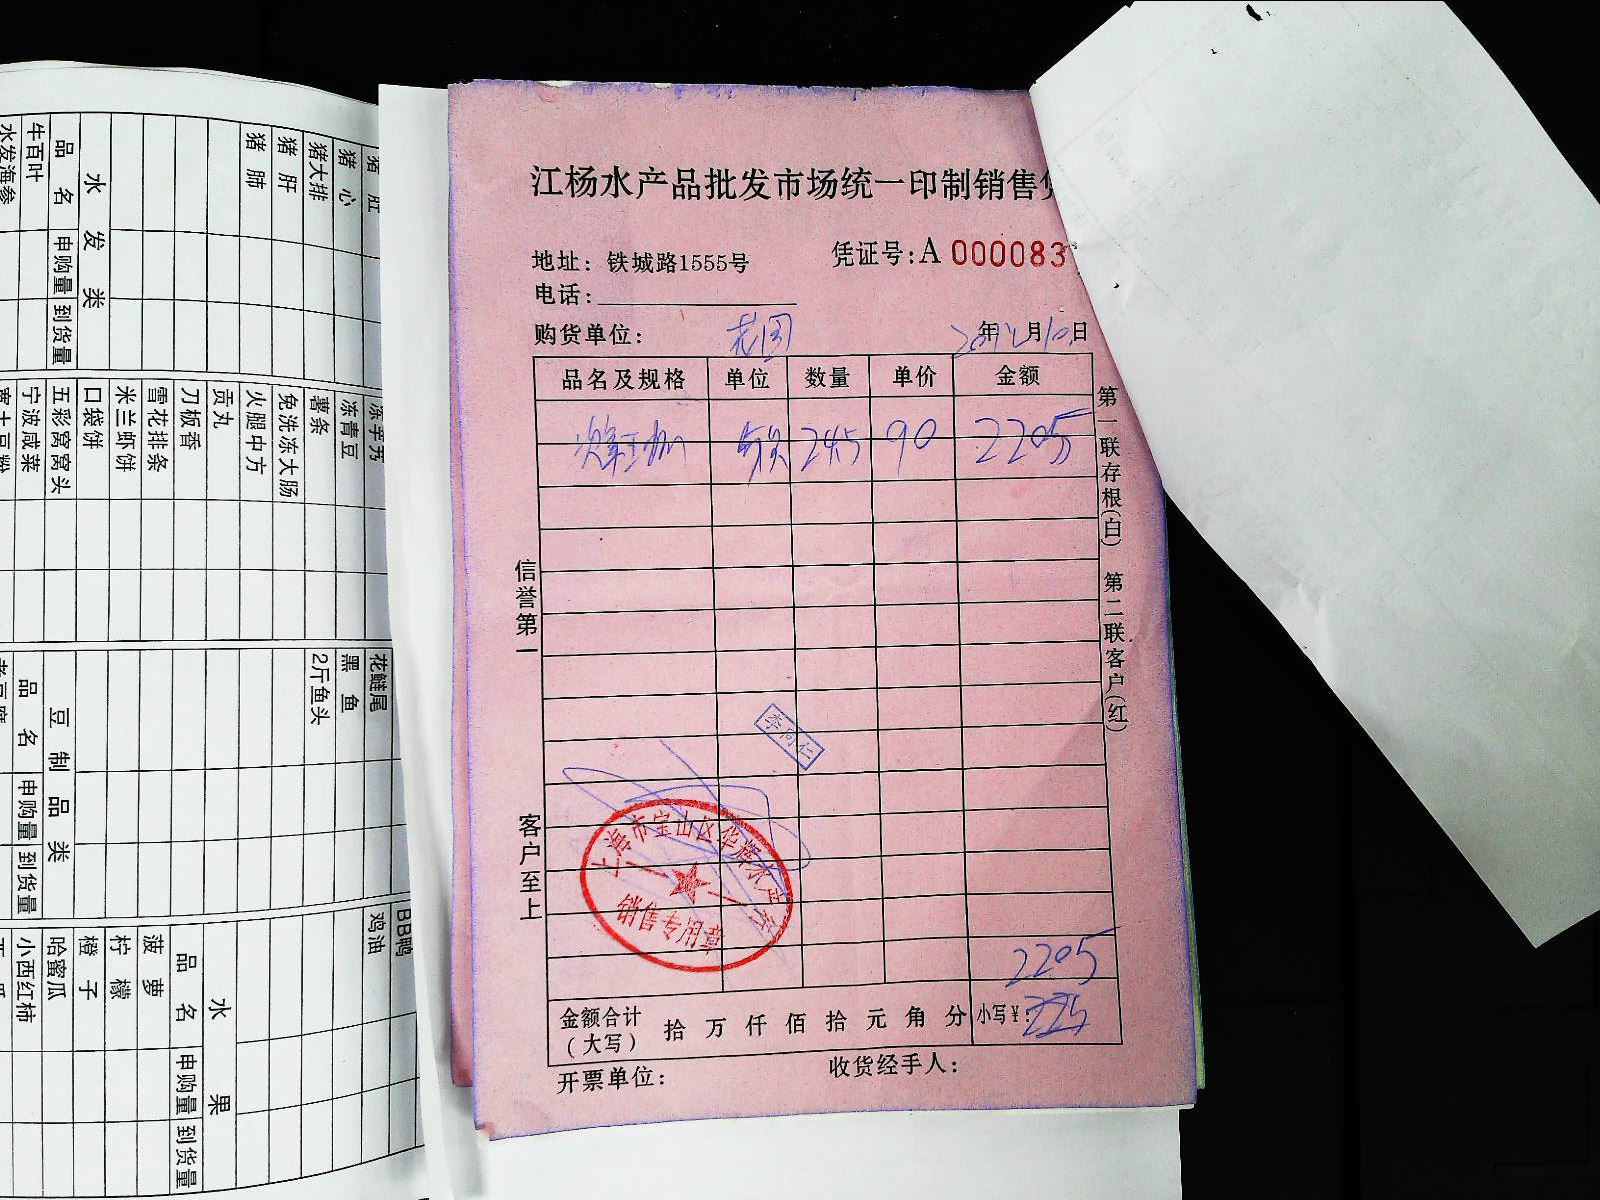 江杨水产品批发市场统一印制销售
地址：铁城路1555号
凭证号:A 000083
电话：
购货单位： 花园
年12月10日
品名及规格 单位 数量 单价 金额
245 90 2205
第一联存根(白) 第二联客户(红)
信誉第一
客户至上
李同仁
上海市宝山区华辉水产
销售专用章
2205
金额合计（大写） 拾 万 仟 佰 拾 元 角 分 小写¥:
开票单位：
收货经手人：
猪肚
猪心
猪大排
猪肝
猪肺
水发类
品名 申购量 到货量
牛百叶
水发海参
冻青豆
薯条
免洗冻大肠
火腿中方
贡丸
刀板香
雪花排条
米兰虾饼
口袋饼
五彩窝窝头
宁波咸菜
花鲢尾
黑鱼
2斤鱼头
豆制品类
品名 申购量 到货量
BB鸭
鸡油
水果
品名 申购量 到货量
菠萝
柠檬
橙子
哈蜜瓜
小西红柿